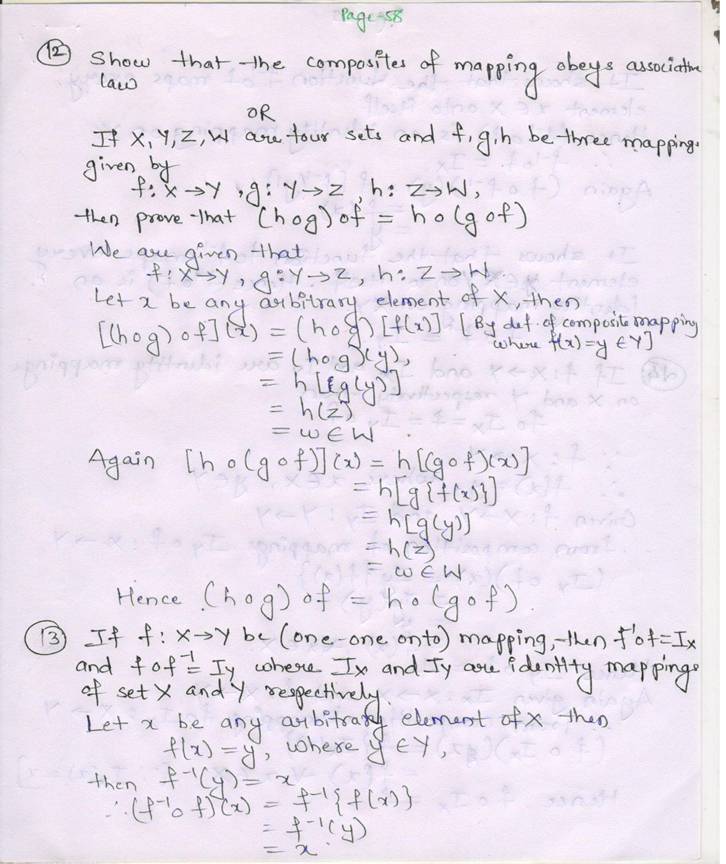 Page-58
(12) Show that the composites of mapping obeys associative
law
OR
If X, Y, Z, W are four sets and f, g, h be three mappings
given by
f: X→Y, g: Y→Z, h: Z→W,
then prove that (hog)of = ho(gof)
We are given that
f: X→Y, g: Y→Z, h: Z→W
Let x be any arbitrary element of X, then
[(hog)of](x) = (hog)[f(x)] [By def. of composite mapping
where f(x)=y ∈Y]
= (hog)(y),
= h[g(y)]
= h(z)
= w ∈ W.
Again [ho(gof)](x) = h[(gof)(x)]
= h[g{f(x)}]
= h[g(y)]
= h(z)
= w ∈ W
Hence (hog) of = ho(gof)
(13) If f: X→Y be (one-one onto) mapping, then f⁻¹of=Ix
and fof⁻¹= Iy where Ix and Iy are identity mappings
of set X and Y respectively.
Let x be any arbitrary element of X then
f(x) = y, where y ∈ Y,
then f⁻¹(y) = x
∴ (f⁻¹of)(x) = f⁻¹{f(x)}
= f⁻¹(y)
= x